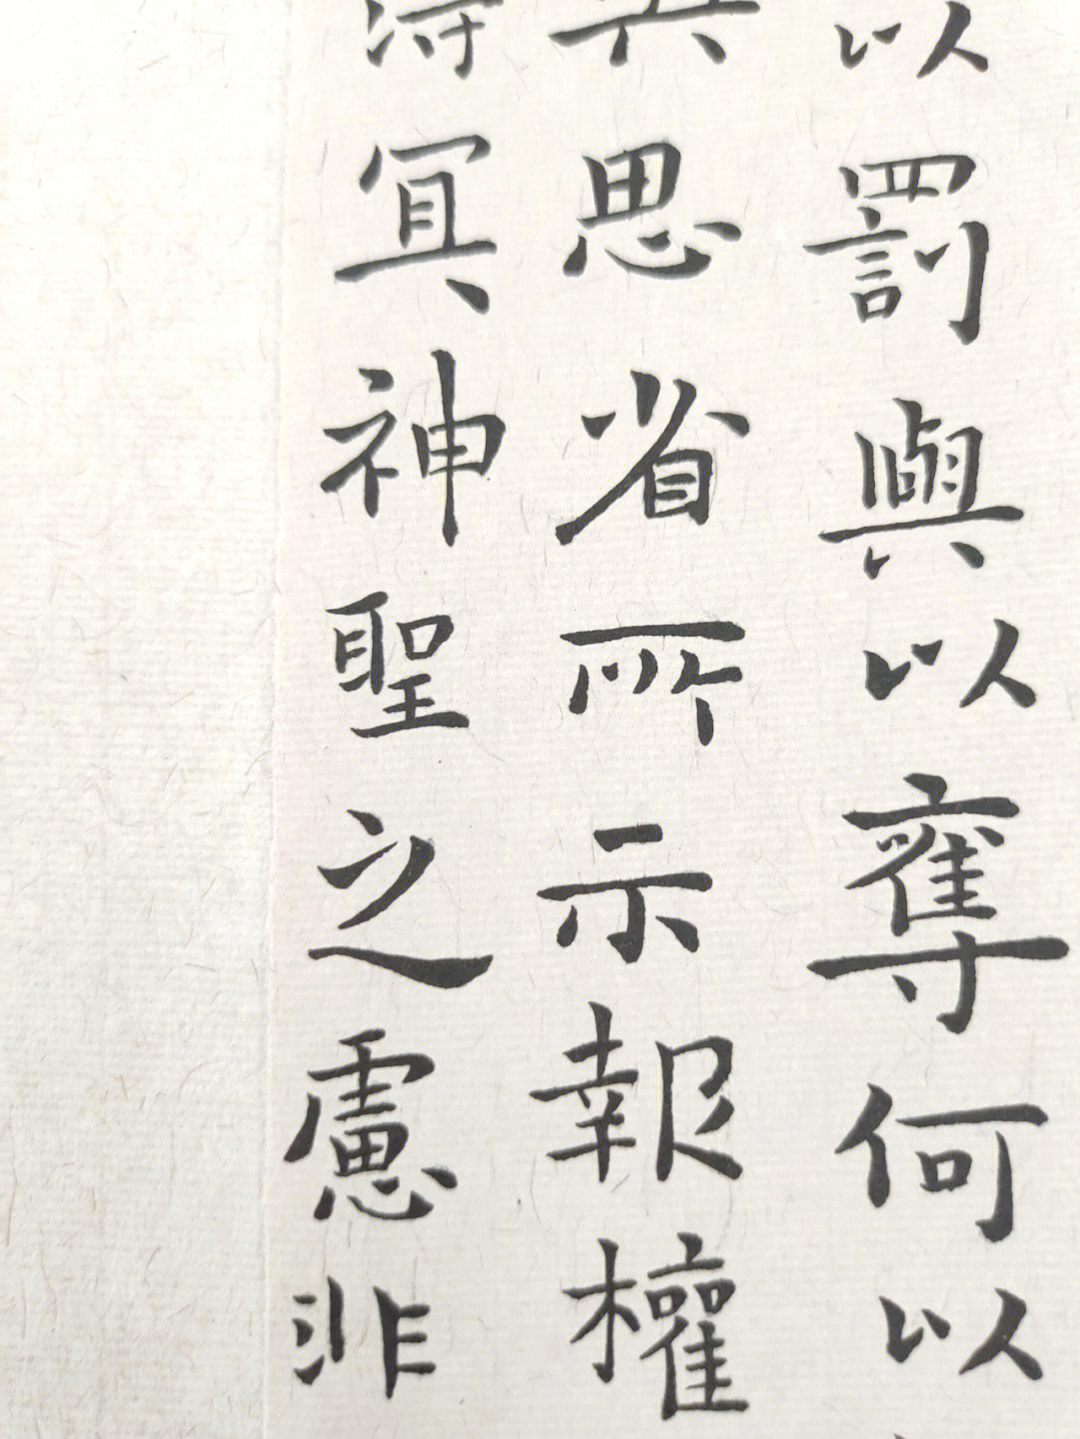 以罰與以奪何以
思省所示報權
冝神聖之慮非